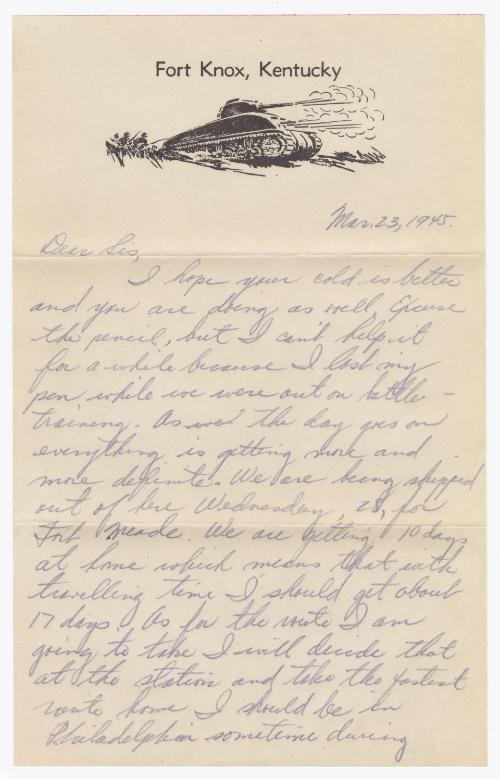 Fort Knox, Kentucky
Mar. 23, 1945.
Dear Sis,
I hope your cold is better
and you are doing as well. Excuse
the pencil, but I can't help it
for a while because I lost my
pen while we were out on battle-
training. As the day goes on
everything is getting more and
more definite. We are being shipped
out of here Wednesday, 28, for
Fort Meade. We are getting 10 days
at home which means that with
travelling time I should get about
17 days. As for the route I am
going to take I will decide that
at the station and take the fastest
route home. I should be in
Philadelphia sometime during